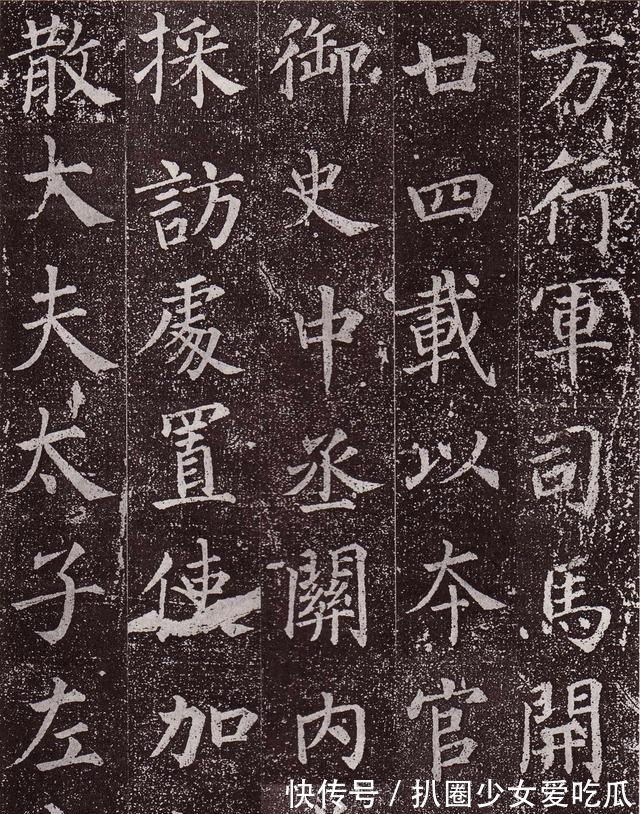 方行軍司馬開
廿四載以本官
御史中丞關內
採訪處置使加
散大夫太子左
快传号 / 扒圈少女爱吃瓜